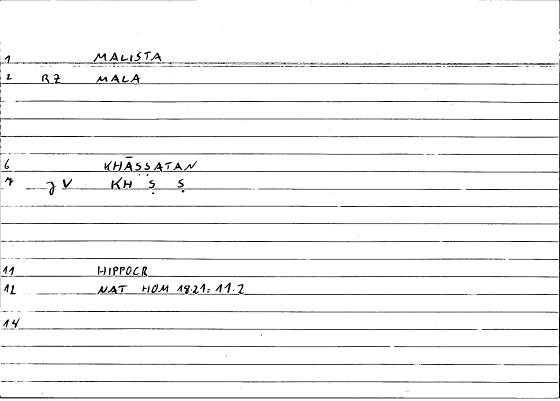 1 MALISTA
2 RZ MALA
6 KHĀṢṢATAN
7 J V KH Ṣ Ṣ
11 HIPPOCR
12 NAT HOM 1821: 11.2
14